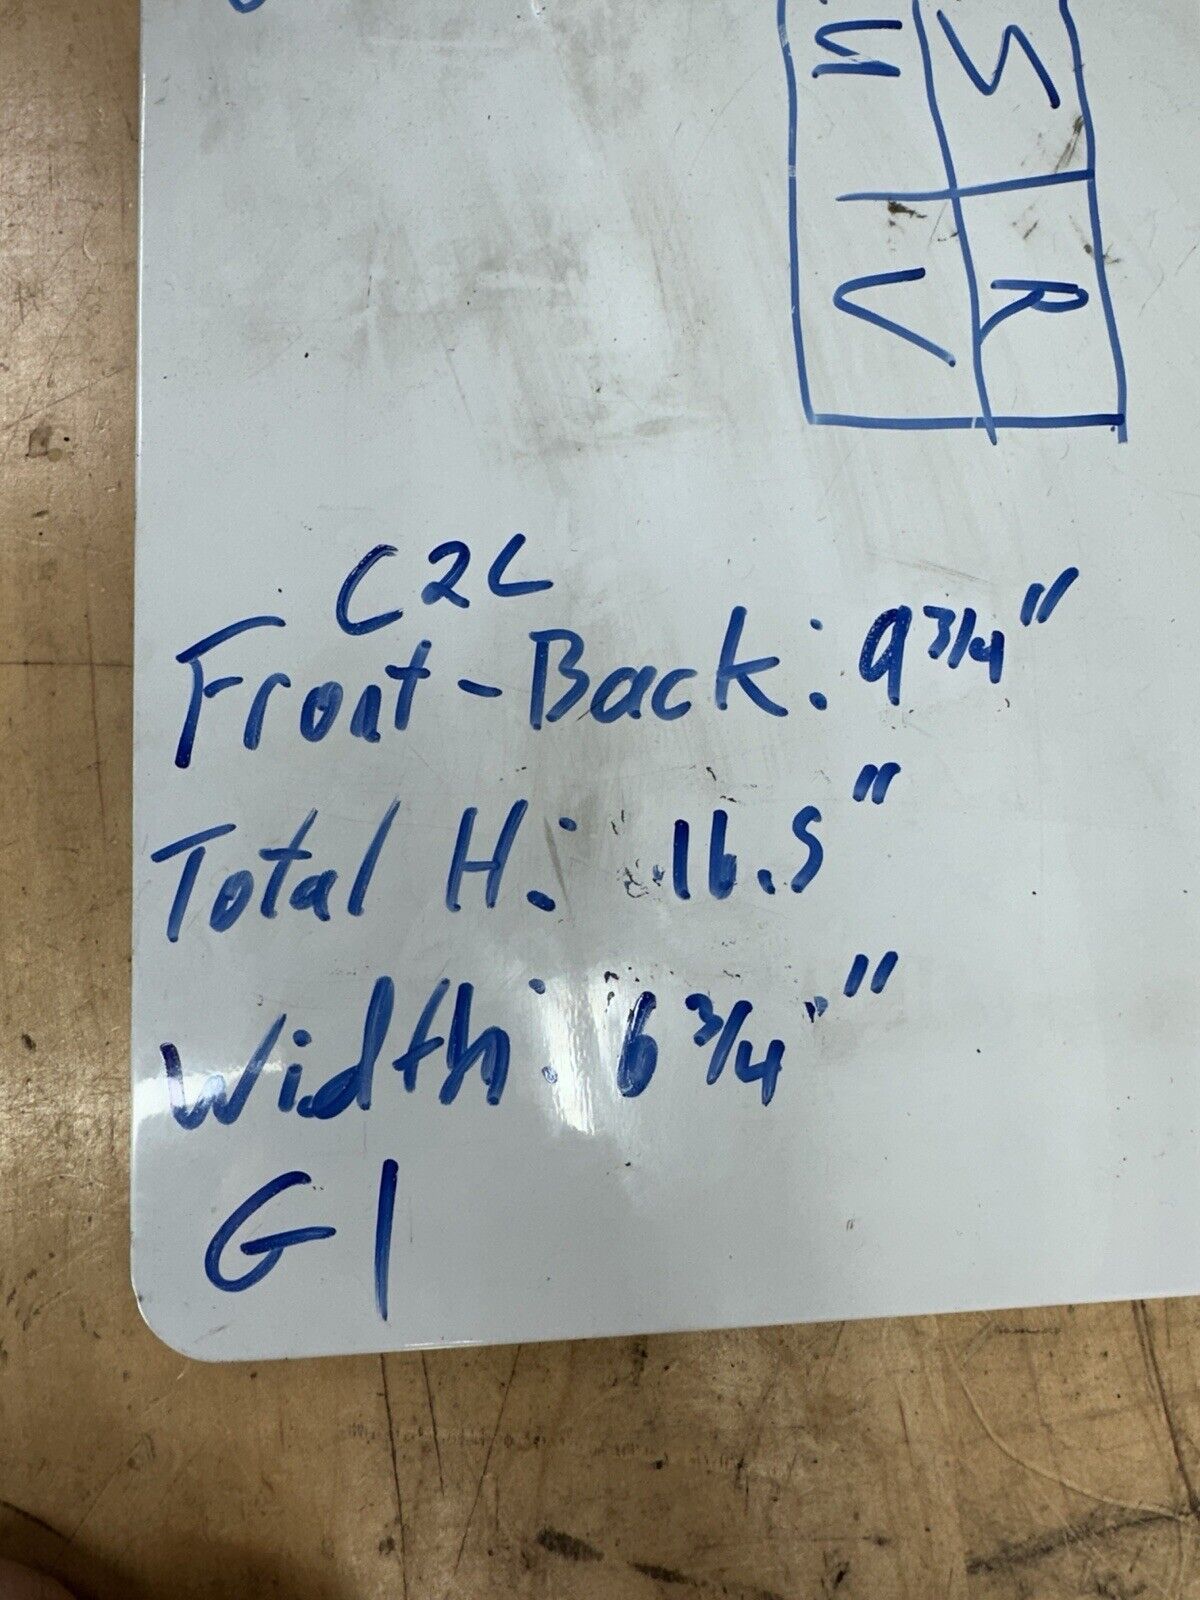 S
R
V
C2C
Front-Back: 9 3/4"
Total H: 16.5"
Width: 6 3/4"
G1